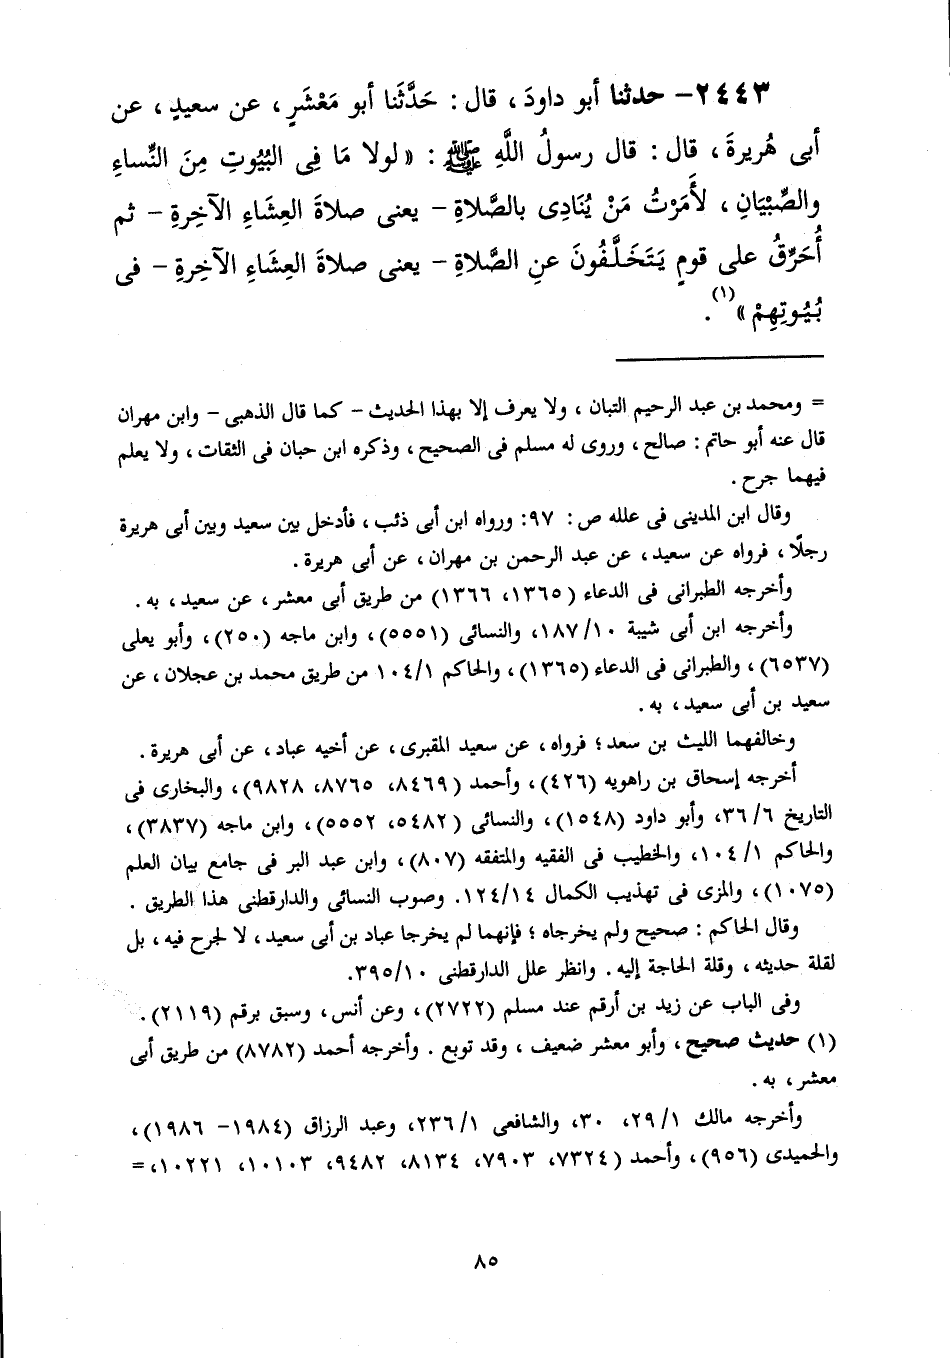 ٢٤٤٣- حدثنا أبو داودَ ، قال : حَدَّثَنا أبو مَعْشَرٍ ، عن سعيدٍ ، عن
أبى هُريرةَ ، قال : قال رسولُ اللَّهِ ﷺ : « لولا مَا فِى البُيُوتِ مِنَ النِّساءِ
والصِّبْيَانِ ، لأَمَرْتُ مَنْ يُنَادِى بالصَّلاةِ - يعنى صلاةَ العِشَاءِ الآخِرةِ - ثم
أُحَرِّقُ على قومٍ يَتَخَلَّفُونَ عنِ الصَّلاةِ - يعنى صلاةَ العِشَاءِ الآخِرةِ - فى
بُيُوتِهِمْ »(١) .
= ومحمد بن عبد الرحيم التبان ، ولا يعرف إلا بهذا الحديث - كما قال الذهبى - وابن مهران
قال عنه أبو حاتم : صالح ، وروى له مسلم فى الصحيح ، وذكره ابن حبان فى الثقات ، ولا يعلم
فيهما جرح .
وقال ابن المدينى فى علله ص : ٩٧: ورواه ابن أبى ذئب ، فأدخل بين سعيد وبين أبى هريرة
رجلًا ، فرواه عن سعيد ، عن عبد الرحمن بن مهران ، عن أبى هريرة .
وأخرجه الطبرانى فى الدعاء (١٣٦٥، ١٣٦٦) من طريق أبى معشر ، عن سعيد ، به .
وأخرجه ابن أبى شيبة ١٨٧/١٠، والنسائى (٥٥٥١)، وابن ماجه (٢٥٠)، وأبو يعلى
(٦٥٣٧)، والطبرانى فى الدعاء (١٣٦٥)، والحاكم ١٠٤/١ من طريق محمد بن عجلان ، عن
سعيد بن أبى سعيد ، به .
وخالفهما الليث بن سعد ؛ فرواه ، عن سعيد المقبرى ، عن أخيه عباد ، عن أبى هريرة .
أخرجه إسحاق بن راهويه (٤٢٦)، وأحمد (٨٤٦٩، ٨٧٦٥، ٩٨٢٨)، والبخارى فى
التاريخ ٣٦/٦، وأبو داود (١٥٤٨)، والنسائى (٥٤٨٢، ٥٥٥٢)، وابن ماجه (٣٨٣٧)،
والحاكم ١٠٤/١، والخطيب فى الفقيه والمتفقه (٨٠٧)، وابن عبد البر فى جامع بيان العلم
(١٠٧٥)، والمزى فى تهذيب الكمال ١٢٤/١٤. وصوب النسائى والدارقطنى هذا الطريق .
وقال الحاكم : صحيح ولم يخرجاه ؛ فإنهما لم يخرجا عباد بن أبى سعيد ، لا لجرح فيه ، بل
لقلة حديثه ، وقلة الحاجة إليه . وانظر علل الدارقطنى ٣٩٥/١٠.
وفى الباب عن زيد بن أرقم عند مسلم (٢٧٢٢)، وعن أنس ، وسبق برقم (٢١١٩).
(١) حديث صحيح ، وأبو معشر ضعيف ، وقد توبع . وأخرجه أحمد (٨٧٨٢) من طريق أبى
معشر ، به .
وأخرجه مالك ٢٩/١، ٣٠، والشافعى ٢٣٦/١، وعبد الرزاق (١٩٨٤- ١٩٨٦)،
والحميدى (٩٥٦)، وأحمد (٧٣٢٤، ٧٩٠٣، ٨١٣٤، ٩٤٨٢، ١٠١٠٣، ١٠٢٢١، =
٨٥